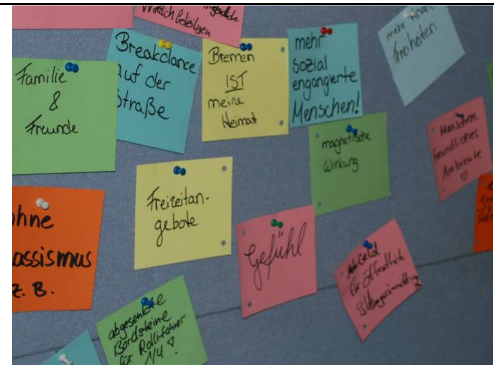 Wirklich beteiligen
Familie
&
Freunde
Breakdance
auf der
Straße
Bremen
IST
meine
Heimat
mehr
sozial
engangierte
Menschen!
mehr
Freiheiten
magnetische
Wirkung
Menschen
freundliches
Ambiente
Freizeitan-
gebote
Gefühl
ohne
Rassismus
z. B.
Geld
für öffentlich
abgesenkte
Bordsteine
für Rollifahrer
1/4